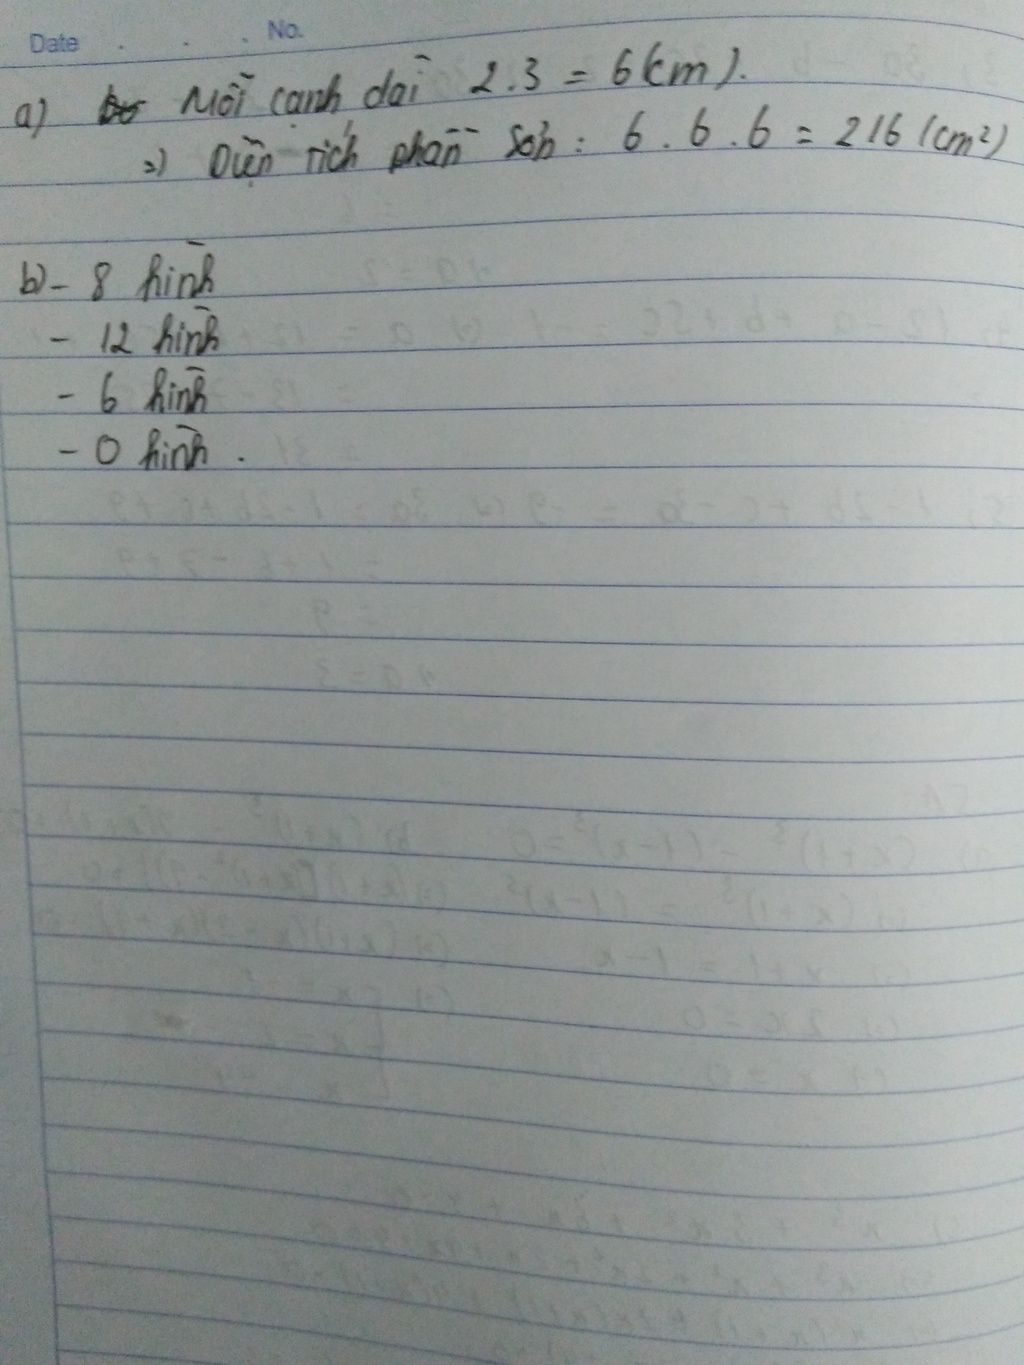 Date . . . No.
a) Mỗi cạnh dài 2.3 = 6(cm).
=) Diện tích phần sơn : 6 . 6 . 6 = 216 (cm²)
b) - 8 hình
- 12 hình
- 6 hình
- 0 hình .